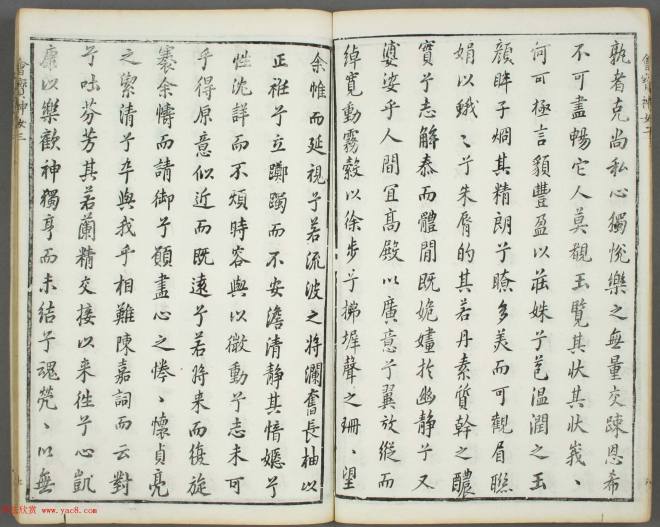 會寶神女二
孰者克尚私心獨悅樂之無量交踈恩希
不可盡暢它人莫覩玉覽其狀其狀峩〻
何可極言貌豐盈以莊姝兮苞溫潤之玉
顏眸子炯其精朗兮瞭多美而可觀眉聮
娟以蛾〻兮朱脣的其若丹素質幹之醲
實兮志解泰而體閒既姽嫿扵幽静兮又
婆娑乎人間冝髙殿以廣意兮翼放縱而
綽寛動霧縠以徐步兮拂墀聲之珊〻望
余惟而延視兮若流波之将瀾奮長柚以
正衽兮立躑躅而不安澹清静其愔嫕兮
性沈詳而不煩時容與以微動兮志未可
乎得原意似近而既逺兮若将来而復旋
褰余幬而請御兮願盡心之惓〻懷貞亮
之㓗清兮卒與我乎相難陳嘉詞而云對
兮吐芬芳其若蘭精交接以来徃兮心凱
康以樂歡神獨亨而未結兮魂㷀〻以無
會寶神女三
书法欣赏 www.yac8.com